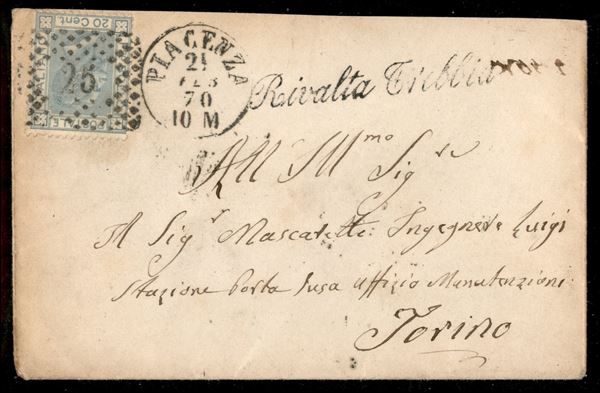 20 Cent
POSTALE
25
PIACENZA
21
FEB
70
10 M
Rivalta Trebbia
All Ill^mo Sig^re
Il Sig^r Mascaretti Ingegnere Luigi
Stazione Porta Susa Uffizio Manutenzioni
Torino